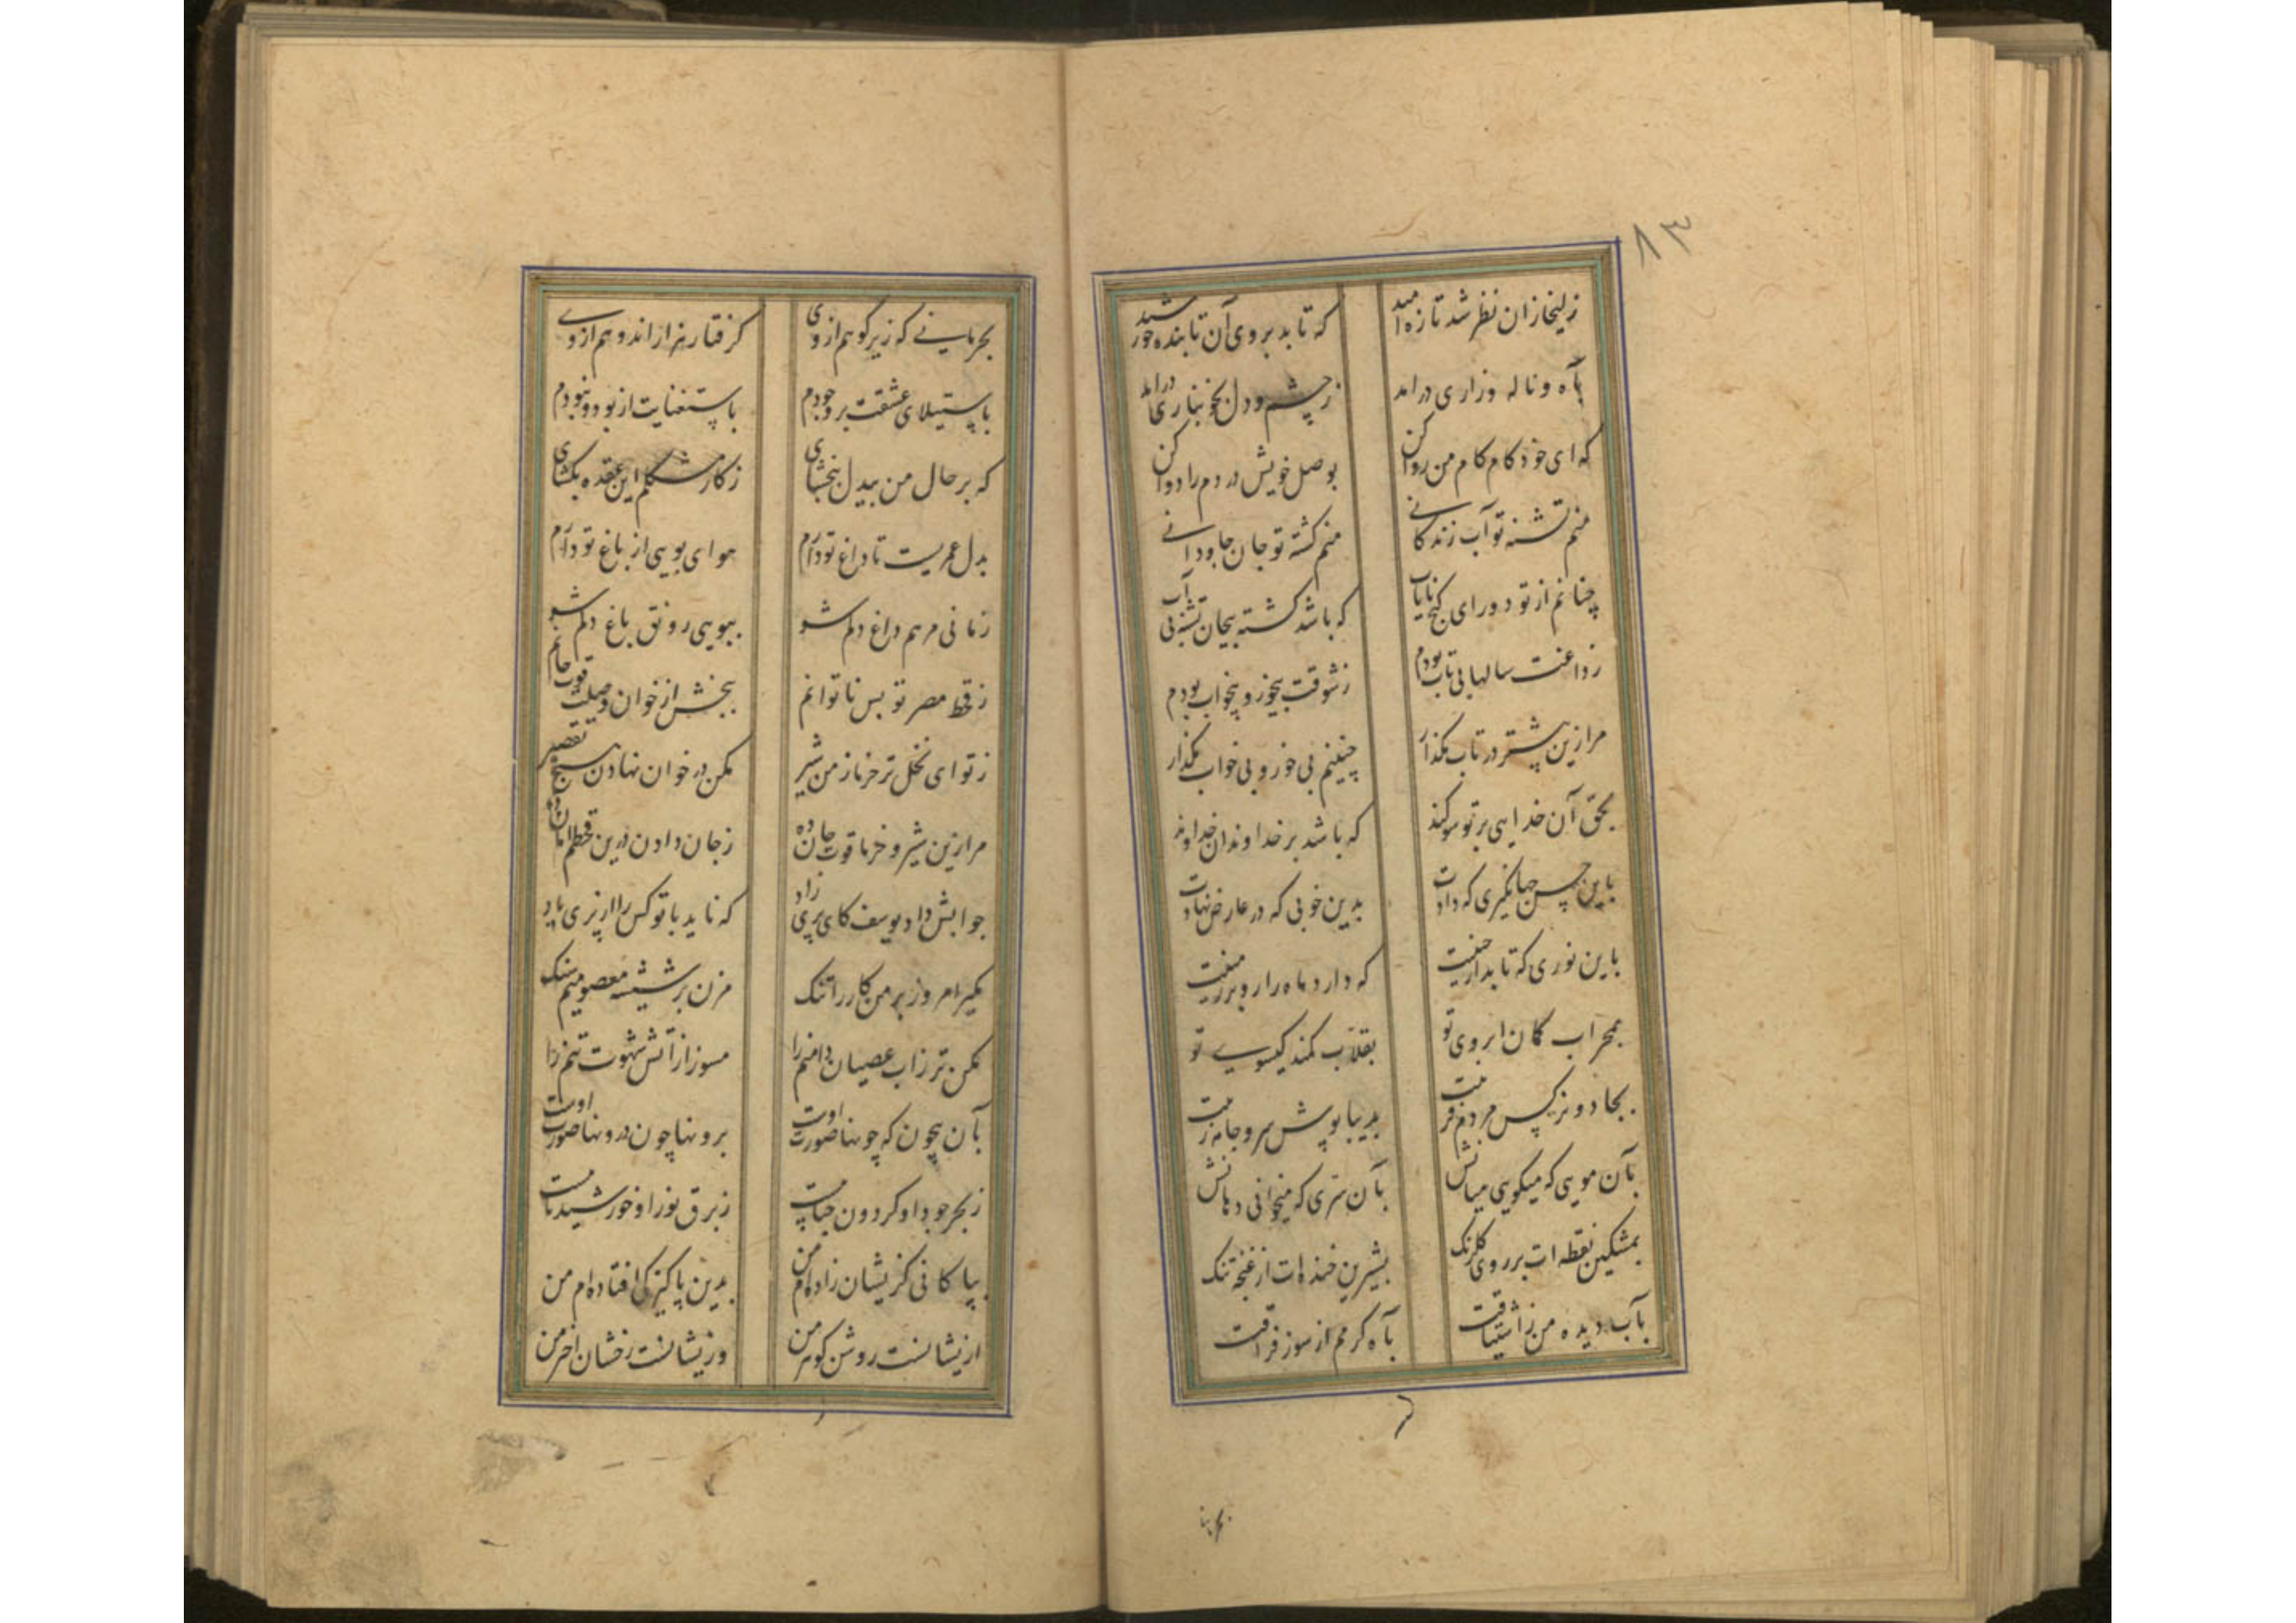 ۸۳
زلیخا زان نظر شد تازه امید که تابد بروی آن تابنده خورشید
بآه و ناله و زاری درامد ز چشم و دل بخونباری درامد
که ای خودکام کام من روا کن بوصل خویش دردم را دوا کن
منم تشنه تو آب زندگانی منم کشته تو جان جاودانی
چنانم از تو دور ای گنج نایاب که باشد کشته بیجان تشنه بی آب
ز داغت سالها بی تاب بودم ز شوقت بیخور و بیخواب بودم
مرا زین پیشتر در تاب مگذار چنینم بی خور و بی خواب مگذار
بحق آن خدایی بر تو سوگند که باشد بر خداوندان خداوند
باین حسن جهانگیری که دادت بدین خوبی که در عارض نهادت
باین نوری که تابد از جبینت که دارد ماه را رو بر زمینت
بمحراب کمان ابروی تو بقلاب کمند گیسوی تو
بجادو نرگس مردم فریبت بدیبا پوش سرو جامه زیبت
بآن مویی که میگویی میانش بآن سرّی که میخوانی دهانش
بمشکین نقطه ات بر روی گلرنگ بشیرین خنده ات از غنچه تنگ
بآب دیده من ز اشتیاقت بآه گرمم از سوز فراقت
بحرمانی که زیر کوهم از وی گرفتار هزار اندوهم از وی
باستیلای عشقت بر وجودم باستغنایت از بود و نبودم
که بر حال من بیدل ببخشای ز کار مشکلم این عقده بگشای
بدل عمریست تا داغ تو دارم هوای بویی از باغ تو دارم
زمانی مرهم داغ دلم شو ببویی رونق باغ دلم شو
ز قحط مصر تو بس ناتوانم ببخش از خوان وصلت قوت جانم
ز تو ای نخل تر خرما ز من شیر مکن در خوان نهادن هیچ تقصیر
مرا زین شیر و خرما قوت جان ده ز جان دادن درین قحطم امان ده
جوابش داد یوسف کای پری زاد که ناید با تو کس را از پری یاد
مگیر امروز بر من کار را تنگ مزن بر شیشه معصومیم سنگ
مکن تر ز اب عصیان دامنم را مسوز از آتش شهوت تنم را
بآن بیچون که چونها صورت اوست برونها چون درونها صورت اوست
ز بحر جود او گردون حبابیست ز برق نور او خورشید تابیست
بپاکانی کزیشان زاده ام من بدین پاکیزگی افتاده ام من
ازیشانست روشن گوهر من وزیشانست رخشان اختر من